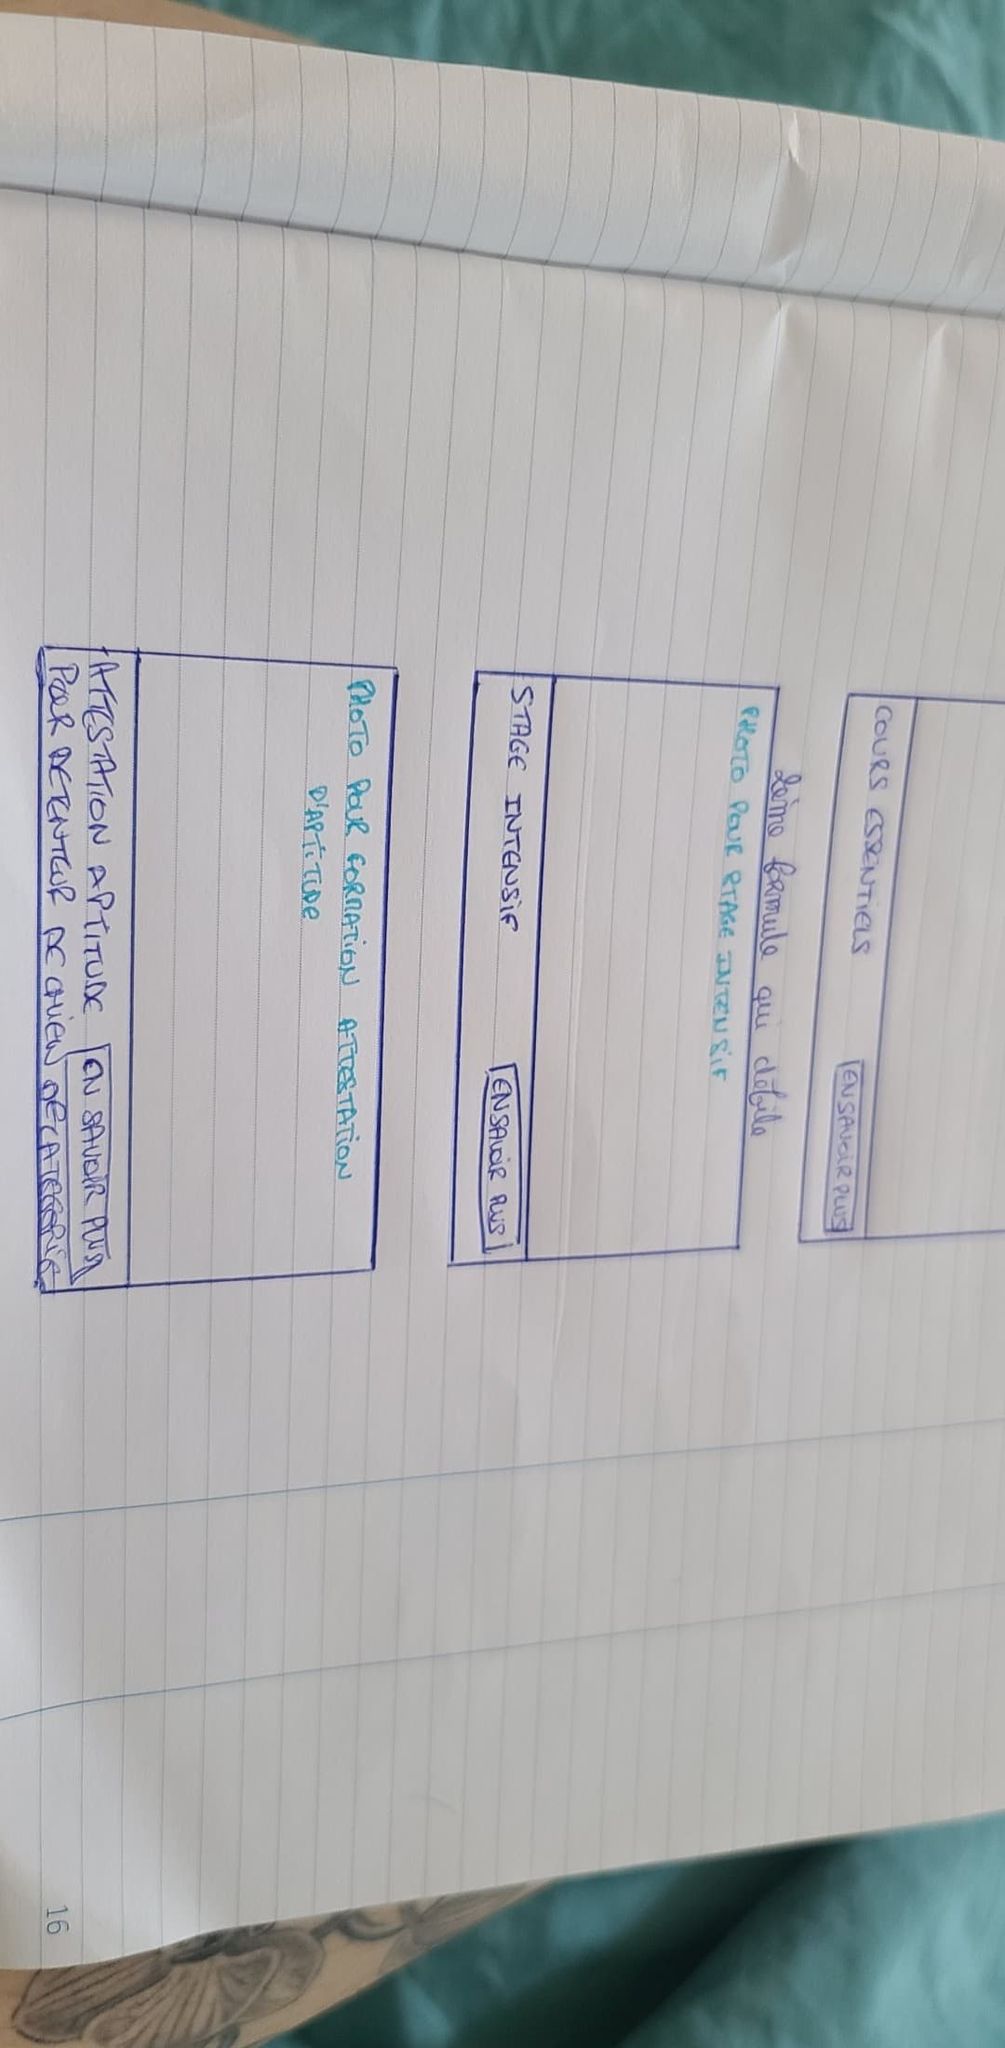 COURS ESSENTIELS
EN SAVOIR PLUS
2ème formule qui défile
PHOTO POUR STAGE INTENSIF
STAGE INTENSIF
EN SAVOIR PLUS
PHOTO POUR FORMATION ATTESTATION
D'APTITUDE
ATTESTATION APTITUDE
EN SAVOIR PLUS
POUR DETENTEUR DE CHIEN DE CATEGORIE
16